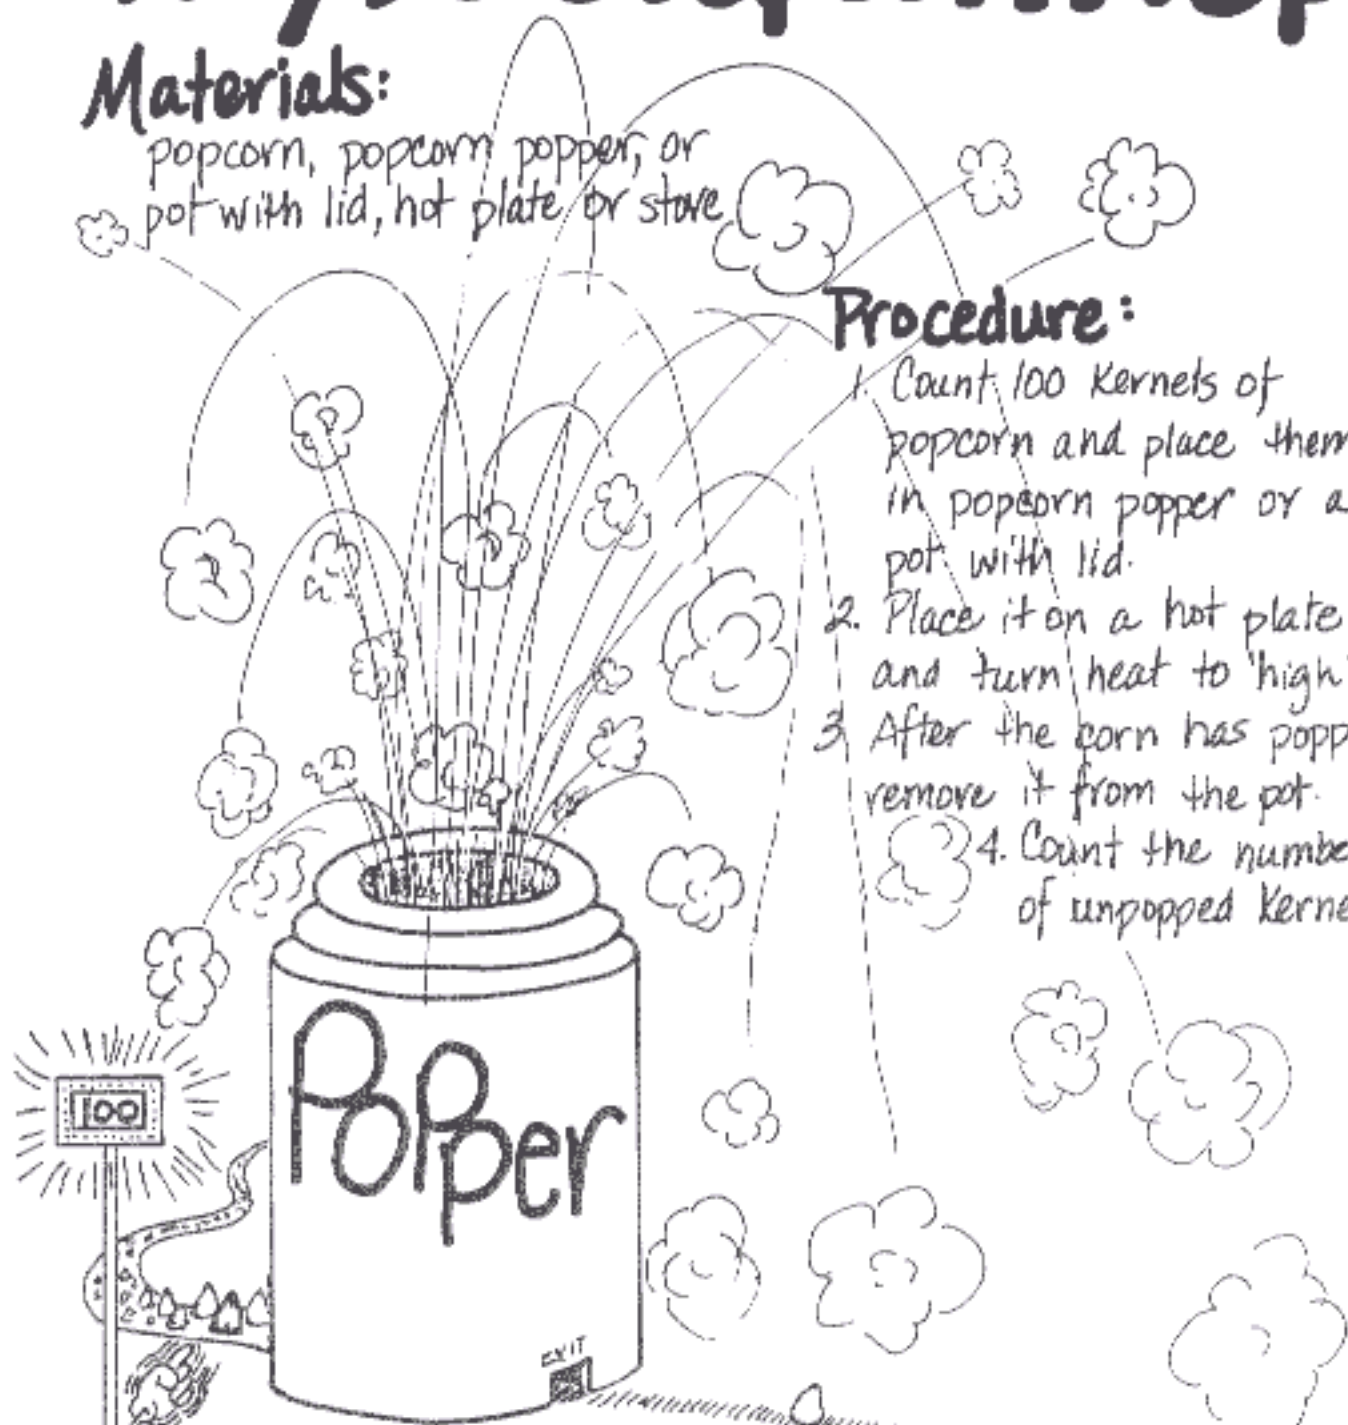 Materials:
popcorn, popcorn popper, or
pot with lid, hot plate or stove
Procedure:
1. Count 100 Kernels of
popcorn and place them
in popcorn popper or a
pot with lid.
2. Place it on a hot plate
and turn heat to "high"
3. After the corn has popp
remove it from the pot.
4. Count the numbe
of unpopped Kerne
100
PoPper
EXIT